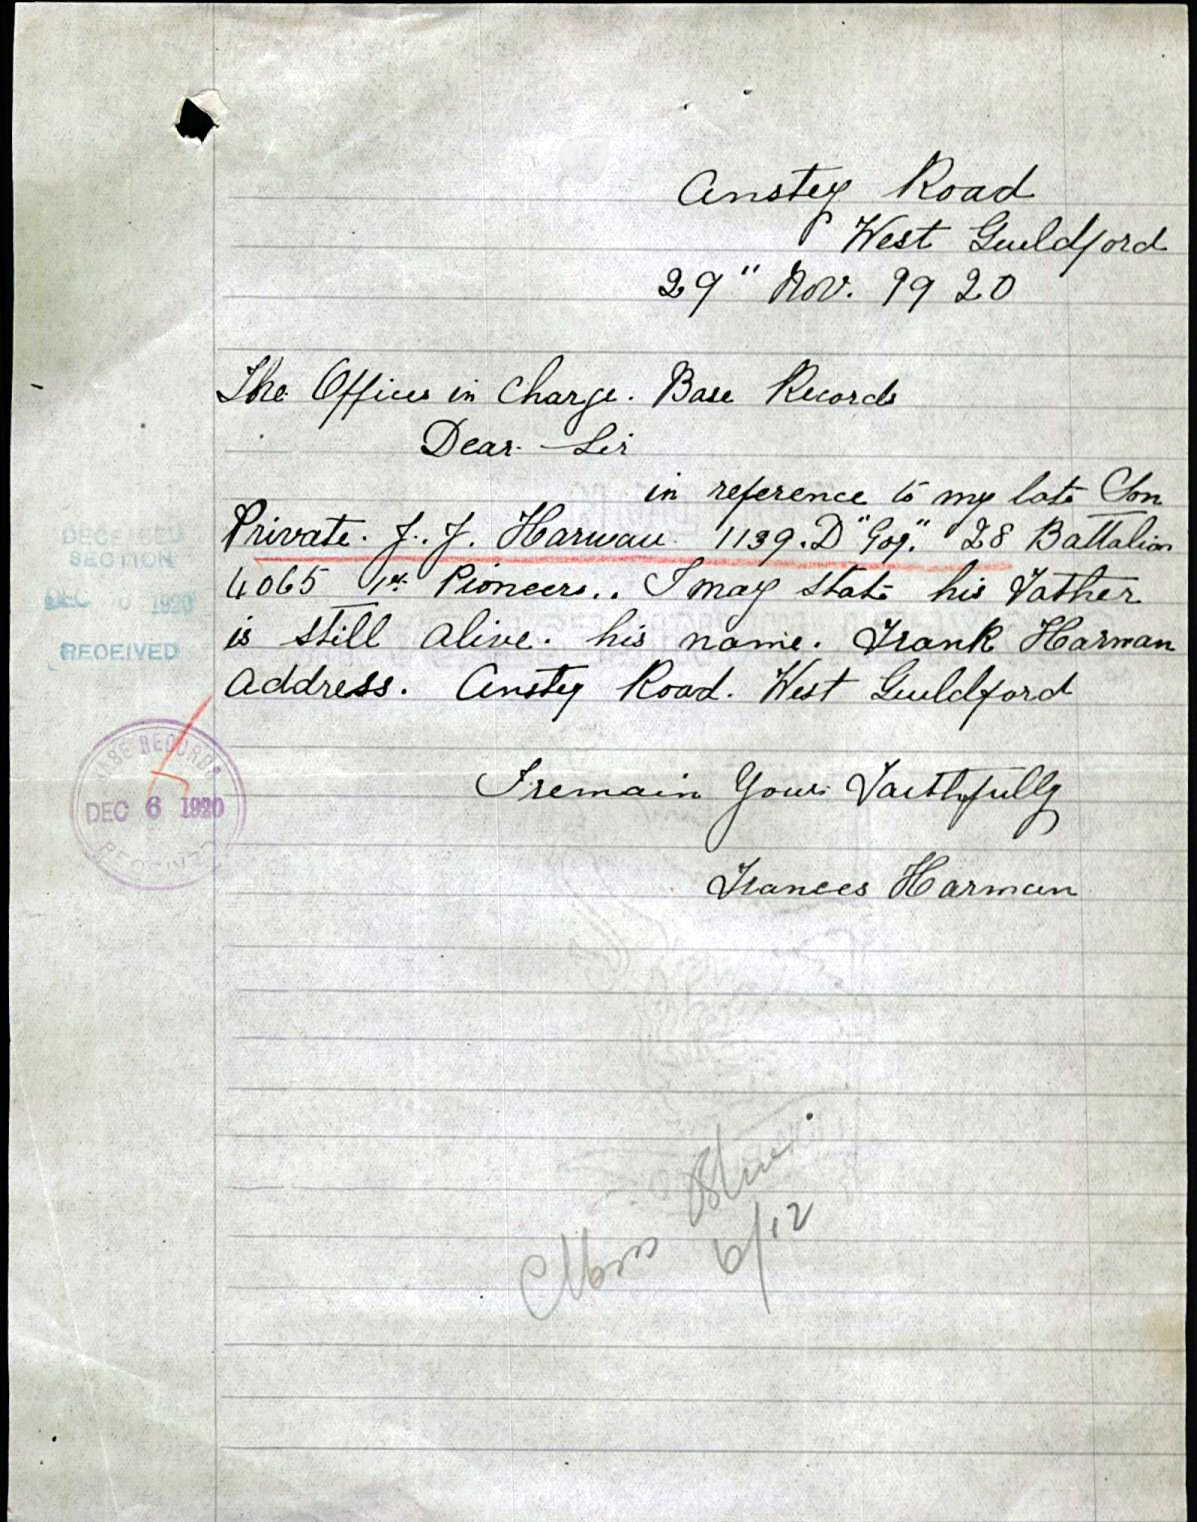 Anstey Road
West Guildford
29" Nov. 1920
The Officer in Charge. Base Records
Dear Sir
in reference to my late Son
Private. J. J. Harman. 1139. D "Coy." 28 Battalion
4065 1st Pioneers.. I may state his Father
is still alive. his name. Frank Harman
address. Anstey Road. West Guildford
DECEASED
SECTION
DEC 6 1920
RECEIVED
BASE RECORDS
DEC 6 1920
RECEIVED
I remain Yours Faithfully
Frances Harman
6/12